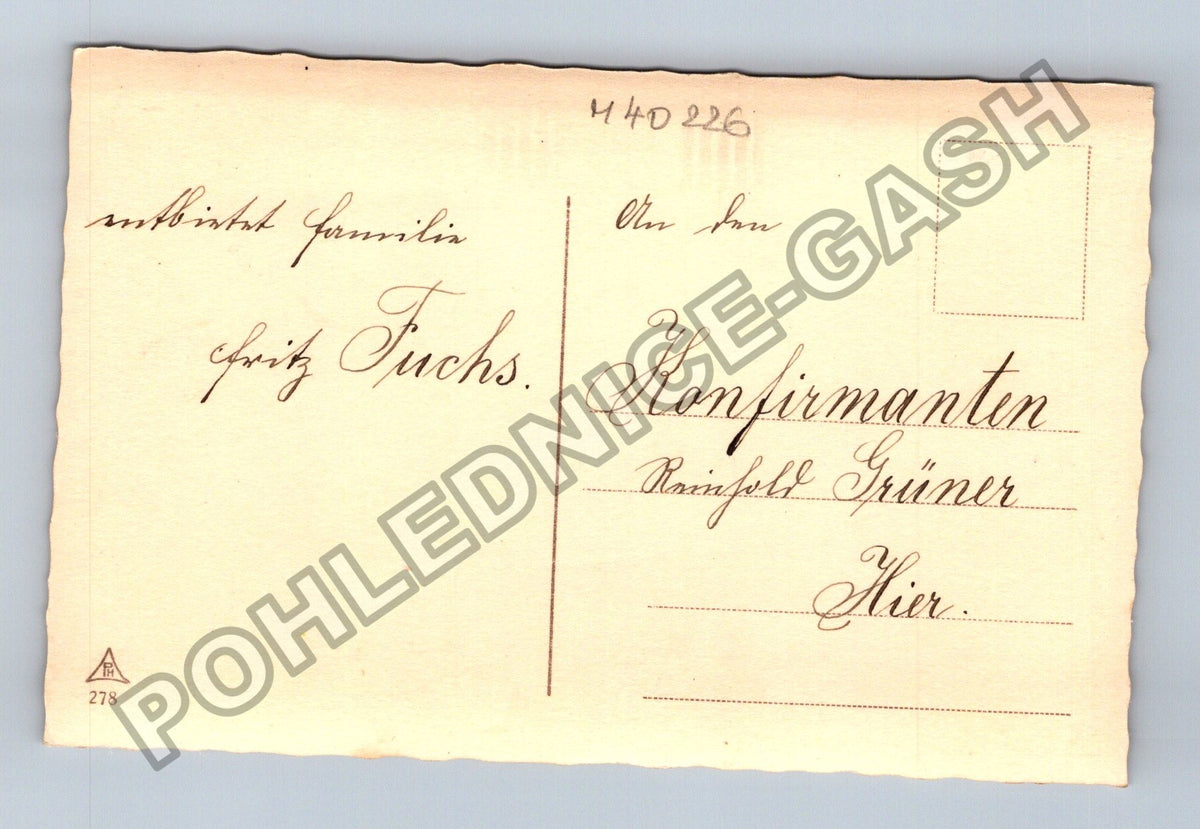 M 4D 226
entbietet Familie
Fritz Fuchs.
An den
Konfirmanten
Reinhold Grüner
Hier.
PH
278
POHLEDNICE-GASH